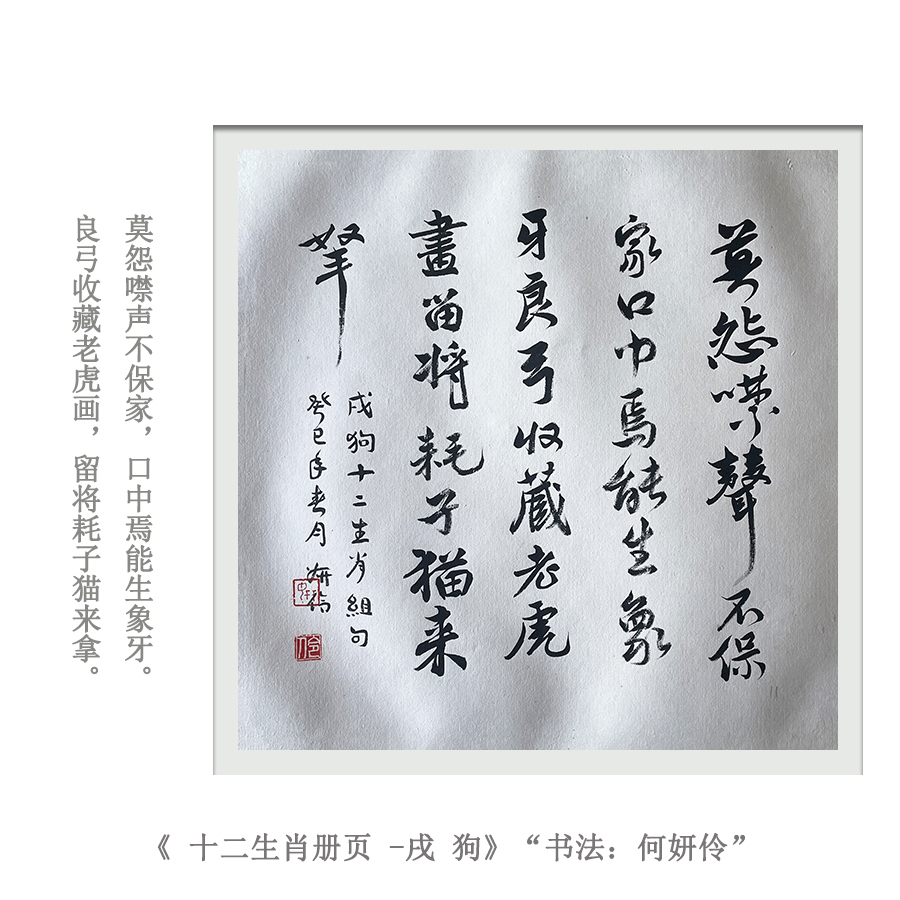 莫怨噤声不保家，口中焉能生象牙。
良弓收藏老虎画，留将耗子猫来拿。
莫怨噤聲不保
家口中焉能生象
牙良弓收藏老虎
畫留将耗子猫来
拏
戌狗十二生肖組句
癸巳年春月 妍伶
《 十二生肖册页 -戌 狗》“书法：何妍伶”